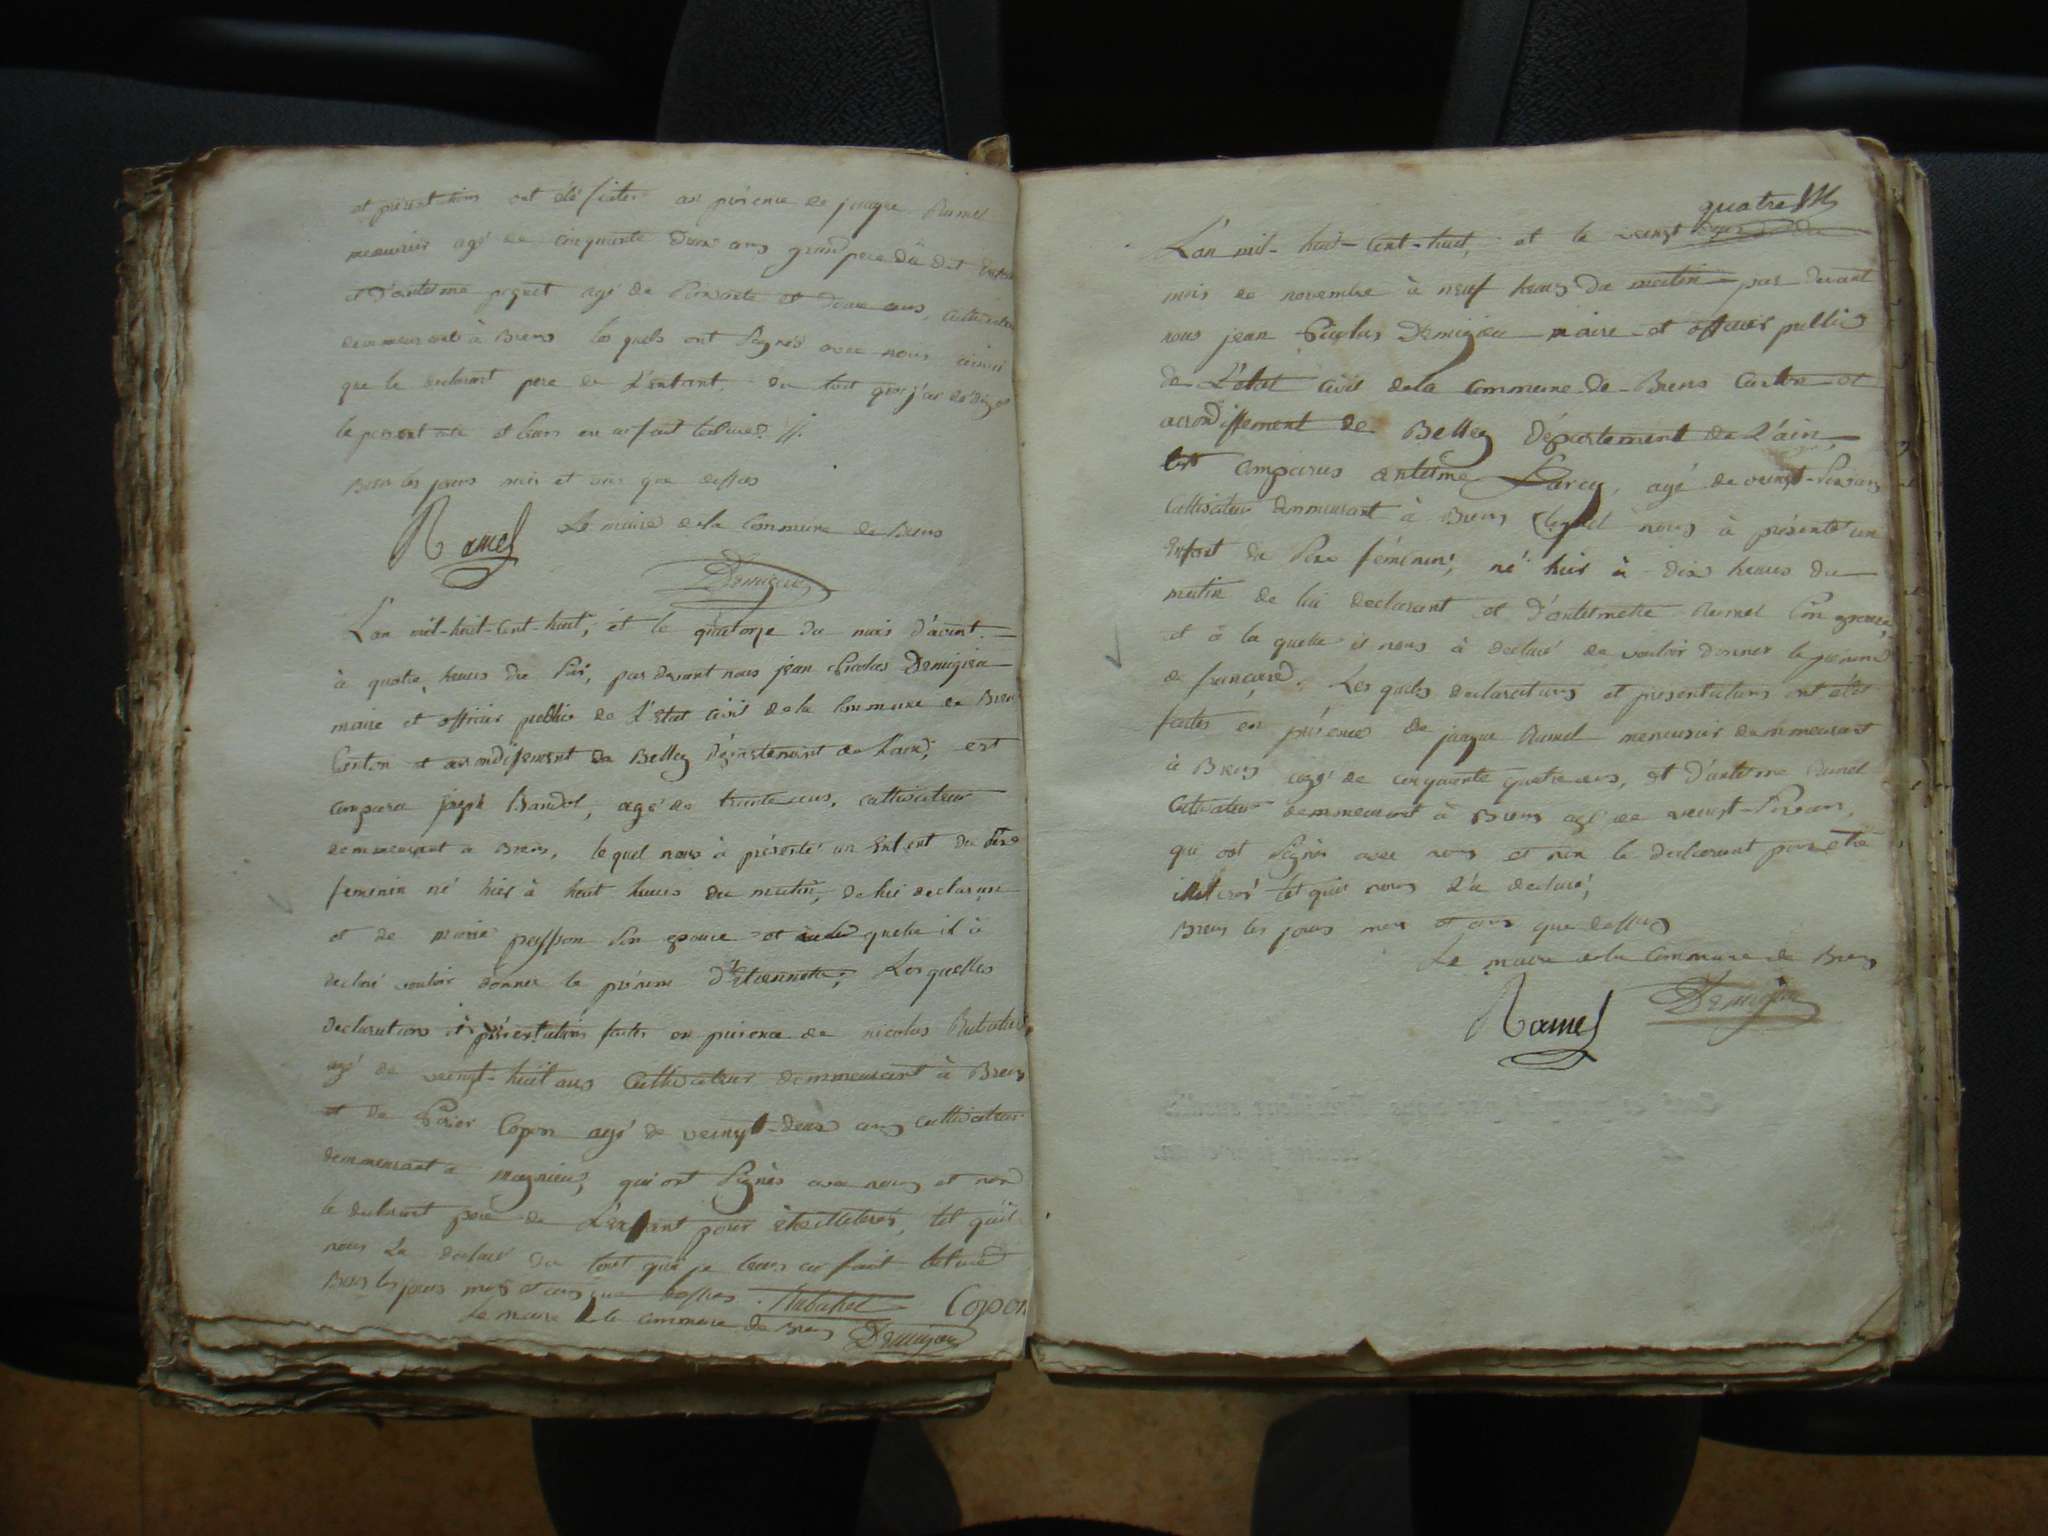 et présentations ont été faites en présence de jaque Ramel
menuisier agé de cinquante deux ans grand pere du dit enfant
et d'antelme peguet agé de soixante et douze ans, cultivateur
demmeurant à Brens les quels ont signés avec nous ainsi
que le declarant pere de l'enfant, du tout quoi j'ai rédigé
le present acte
Brens les jours mois et ans que dessus
Le maire de la Commune de Brens
Ramel
Demigieu
L'an mil-huit-cent-huit, et le quatorze du mois d'avril
à quatre heures du soir, par devant nous jean Nicolas Demigieu
maire et officier public de L'état civil de la Commune de Brens
Canton et arrondissement de Belley Département de L'ain, est
comparu joseph Bandol, agé de trante ans, cultivateur
demmeurant a Brens, lequel nous à présenté un Enfant du sexe
feminin né hier à huit heures du matin, de lui declarant
et de marie peysson son epouse et au quelle il à
declaré vouloir donner le prénom d'Etiennette, Les quelles
declarations et présentations faites en présence de nicolas Rubatel
agé de veingt-huit ans Cultivateur demmeurant à Brens
et de Copon agé de veingt-deux ans cultivateur
demmeurant a magnieu, qui ont signés avec nous et non
le declarant pere de L'enfant pour être illiteré, tel qu'il
nous La declaré du tout quoi je leurs ai fait lecture
Brens les jours mois et ans que dessus. Rubatel Copon
Le maire de la commune de Brens Demigieu
quatre
L'an mil-huit-cent-huit, et le veingt du
mois de novembre à neuf heures du matin par devant
nous jean Nicolas Demigieu maire et officier public
de L'état civil de la Commune de Brens Canton et
arrondissement de Belley Département de L'ain,
est comparus antelme Larcy, agé de veingt-six ans
Cultivateur demmeurant à Brens lequel nous à présenté un
Enfant du sexe féminin, né hier à dix heures du
matin de lui declarant et d'antelmette Ramel son epouse,
et à la quelle il nous à declaré de vouloir donner le prénom
de françoise. Les quels declarations et presentations ont étés
faites en présence de jaque Ramel menuisier demmeurant
à Brens agé de cinquante quatre ans, et d'antelme Ramel
Cultivateur demmeurant à Brens agé de veingt-six ans,
qui ont signés avec nous et non le declarant pour etre
illiteré tel qu'il nous l'a declaré,
Brens les jours mois et ans que dessus
Le maire de la Commune de Brens
Ramel
Demigieu